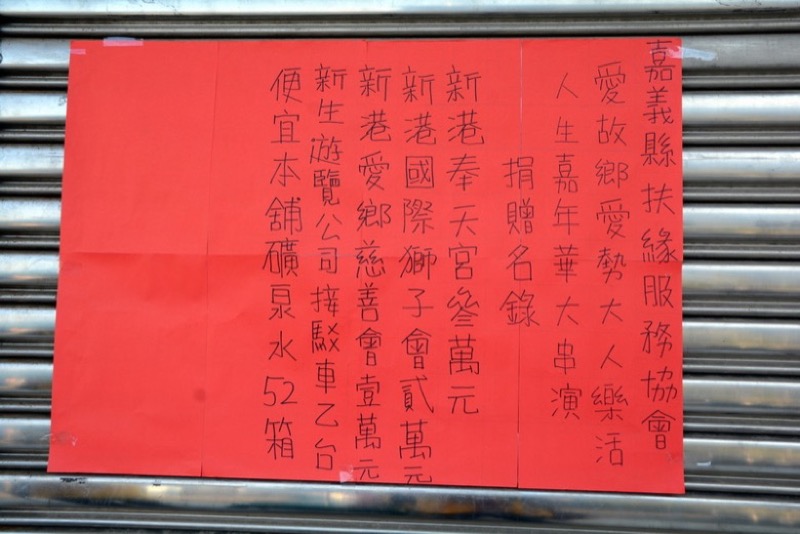 嘉義縣扶緣服務協會
愛故鄉愛勢大人樂活
人生嘉年華大串演
捐贈名錄
新港奉天宮參萬元
新港國際獅子會貳萬元
新港愛鄉慈善會壹萬元
新生遊覽公司接駁車乙台
便宜本舖礦泉水52箱